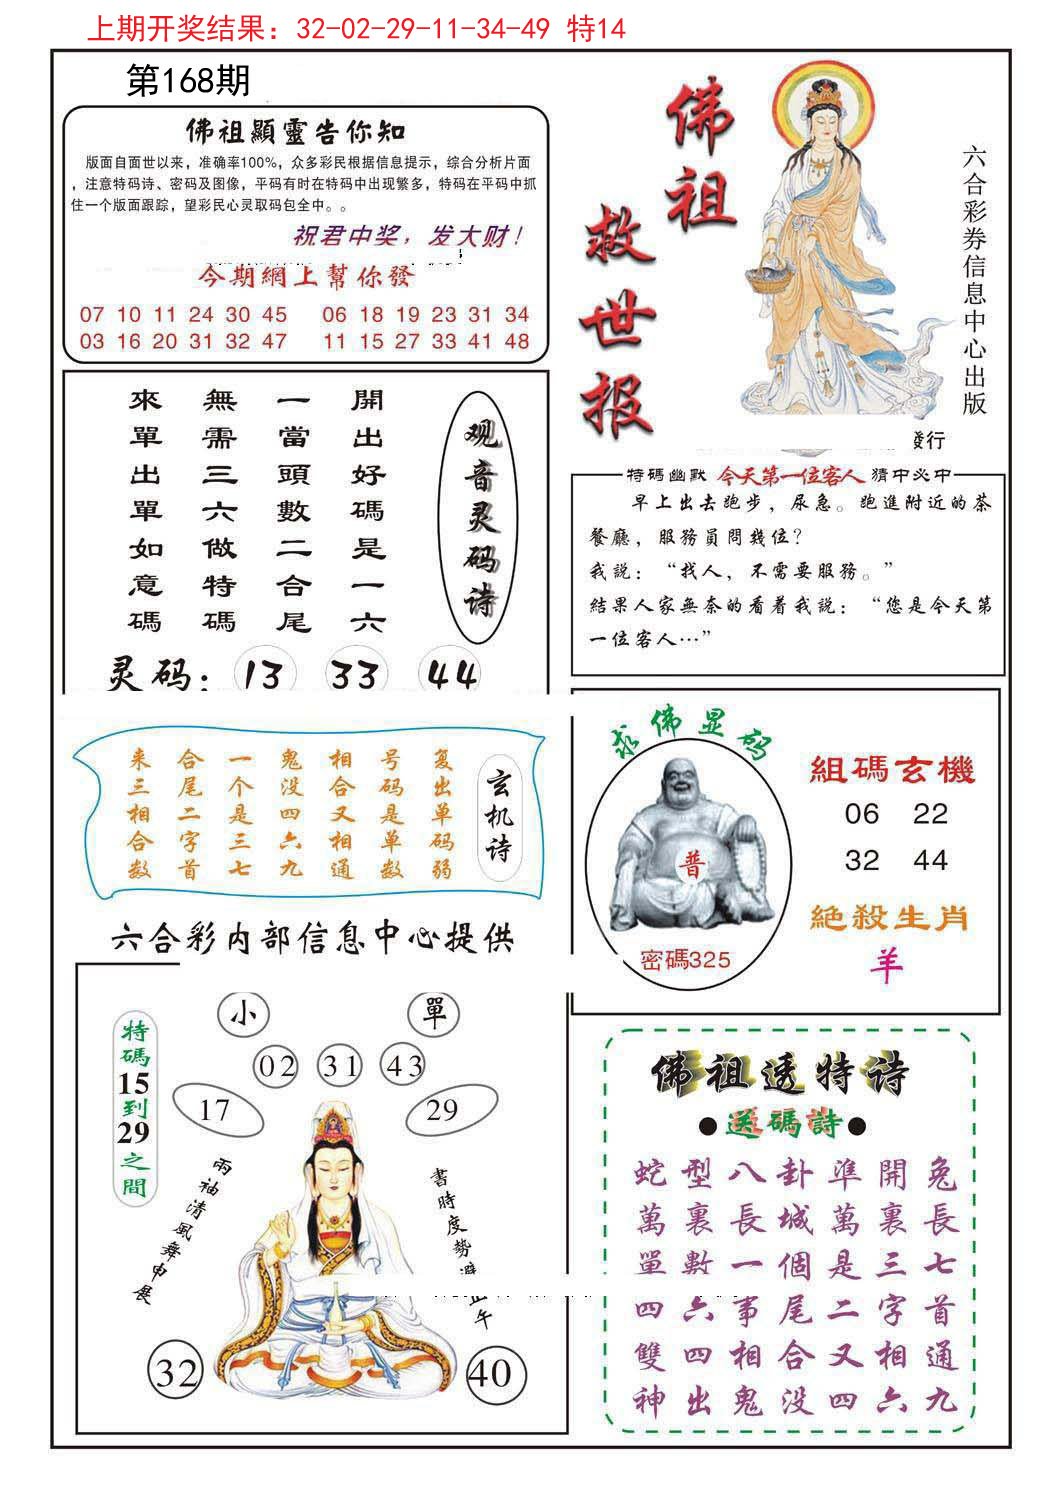 上期开奖结果：32-02-29-11-34-49 特14
第168期
佛祖顯靈告你知
版面自面世以来，准确率100%，众多彩民根据信息提示，综合分析片面
，注意特码诗、密码及图像，平码有时在特码中出现繁多，特码在平码中抓
住一个版面跟踪，望彩民心灵取码包全中。。
祝君中奖，发大财！
今期網上幫你發
07 10 11 24 30 45 06 18 19 23 31 34
03 16 20 31 32 47 11 15 27 33 41 48
佛祖
救世报
六合彩券信息中心出版
發行
观音灵码诗
開出好碼是一六
一當頭數二合尾
無需三六做特碼
來單出單如意碼
灵码：13 33 44
特碼幽默 今天第一位客人 猜中必中
早上出去跑步，尿急。跑進附近的茶
餐廳，服務員問幾位？
我説：“找人，不需要服務。”
結果人家無奈的看着我説：“您是今天第
一位客人…”
玄机诗
复出单码弱
号码是单数
相合又相通
鬼没四六九
一个是三七
合尾二字首
来三相合数
六合彩内部信息中心提供
求佛显码
普
密碼325
組碼玄機
06 22
32 44
絕殺生肖
羊
特碼15到29之間
小 單
02 31 43
17 29
兩袖清風舞申展
書時度勢避正午
32 40
佛祖透特诗
●送碼詩●
蛇型八卦準開兔
萬裏長城萬裏長
單數一個是三七
四六事尾二字首
雙四相合又相通
神出鬼没四六九